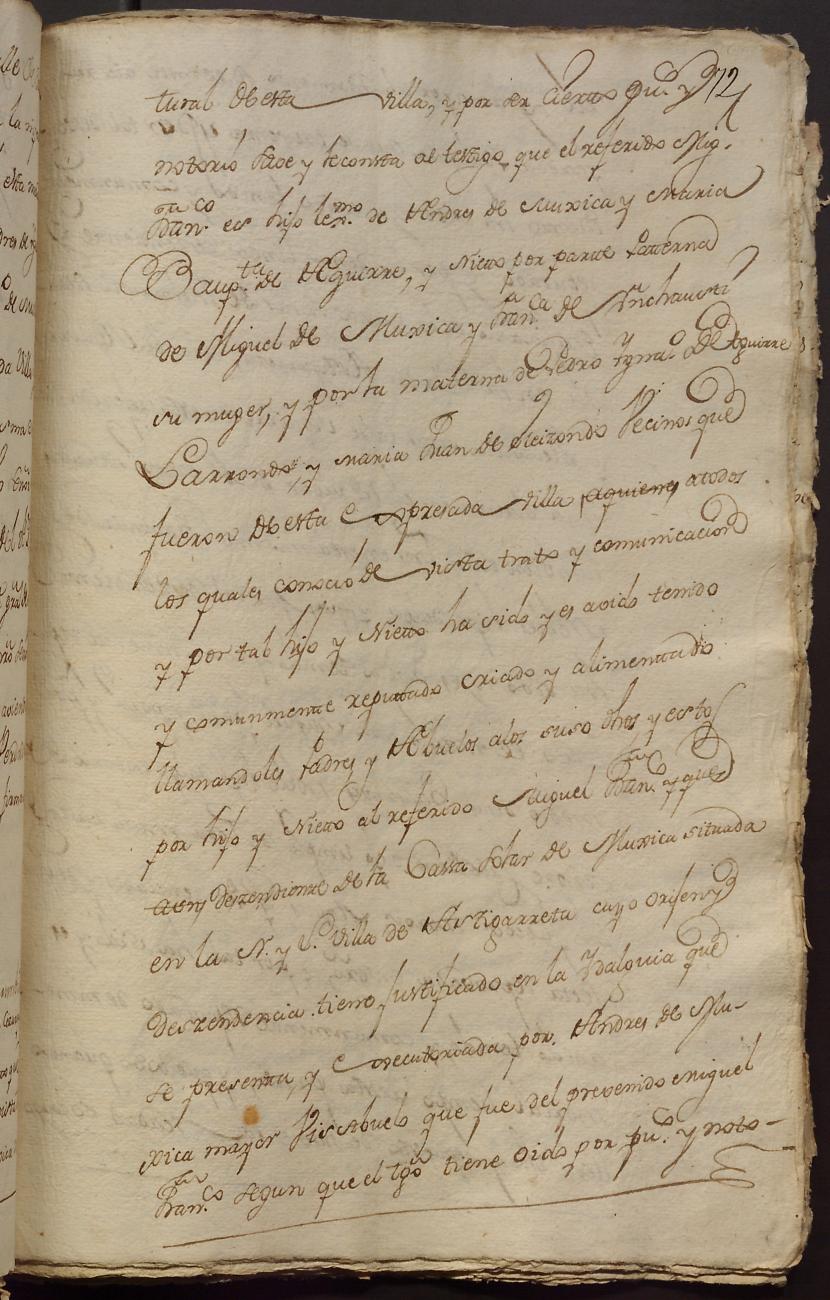 72
tural de esta villa, y por ser cierto pu.co y
notorio save y le consta al testigo que el referido Mig.
Fran.co es hijo lexmo. de Andres de Muxica y Maria
Baup.ta de Aguirre, y Nieto por parte Patterna
de Miguel de Muxica y Fran.ca de Anchausti
su muger, y por la materna de Pedro Ygna.o de Aguirre
Larrondo, y Maria Juan de Oleizondo Vecinos que
fueron de esta expresada villa, aquienes atodos
los quales conoció de vista trato y comunicacion
y por tal hijo y Nieto ha sido y es avido tenido
y comunmente reputado criado y alimentado
llamandoles Padres y Abuelos alos suso dhos y estos
por hijo y Nieto al referido Miguel Fran.co y que
descendiente de la Cassa Solar de Muxica situada
en la N. y L. villa de Astigarreta cuyo orijen y
descendencia tiene justificado en la Ydalguia que
se presenta, y executoriada por Andres de Mu-
xica mayor Visabuelo que fue del prevenido Miguel
Fran.co segun que el tgo tiene oido por pu.co y noto-